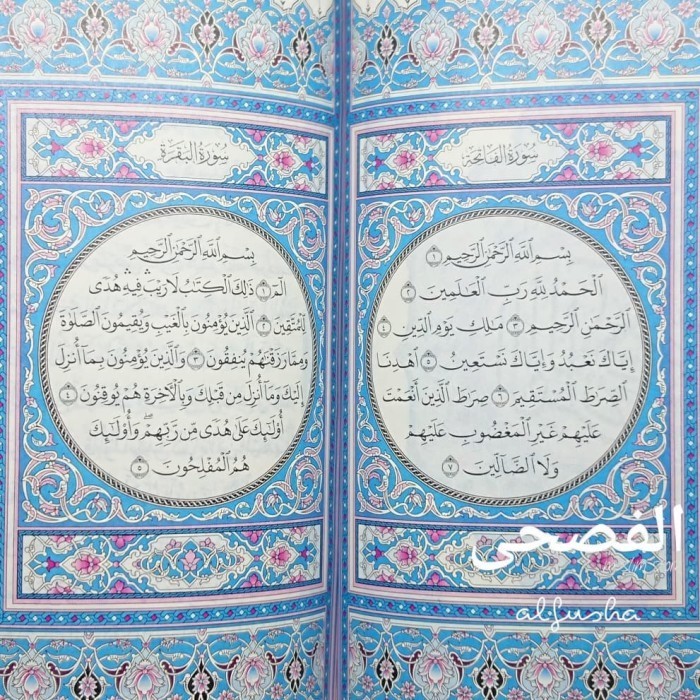 سورة الفاتحة
بِسْمِ ٱللَّهِ ٱلرَّحْمَٰنِ ٱلرَّحِيمِ ١
ٱلْحَمْدُ لِلَّهِ رَبِّ ٱلْعَٰلَمِينَ ٢
ٱلرَّحْمَٰنِ ٱلرَّحِيمِ ٣ مَٰلِكِ يَوْمِ ٱلدِّينِ ٤
إِيَّاكَ نَعْبُدُ وَإِيَّاكَ نَسْتَعِينُ ٥ ٱهْدِنَا
ٱلصِّرَٰطَ ٱلْمُسْتَقِيمَ ٦ صِرَٰطَ ٱلَّذِينَ أَنْعَمْتَ
عَلَيْهِمْ غَيْرِ ٱلْمَغْضُوبِ عَلَيْهِمْ
وَلَا ٱلضَّآلِّينَ ٧
سورة البقرة
بِسْمِ ٱللَّهِ ٱلرَّحْمَٰنِ ٱلرَّحِيمِ
الٓمٓ ١ ذَٰلِكَ ٱلْكِتَٰبُ لَا رَيْبَۛ فِيهِۛ هُدًى
لِّلْمُتَّقِينَ ٢ ٱلَّذِينَ يُؤْمِنُونَ بِٱلْغَيْبِ وَيُقِيمُونَ ٱلصَّلَوٰةَ
وَمِمَّا رَزَقْنَٰهُمْ يُنفِقُونَ ٣ وَٱلَّذِينَ يُؤْمِنُونَ بِمَآ أُنزِلَ
إِلَيْكَ وَمَآ أُنزِلَ مِن قَبْلِكَ وَبِٱلْءَاخِرَةِ هُمْ يُوقِنُونَ ٤
أُو۟لَٰٓئِكَ عَلَىٰ هُدًى مِّن رَّبِّهِمْۖ وَأُو۟لَٰٓئِكَ
هُمُ ٱلْمُفْلِحُونَ ٥
الفصحى
alfusha